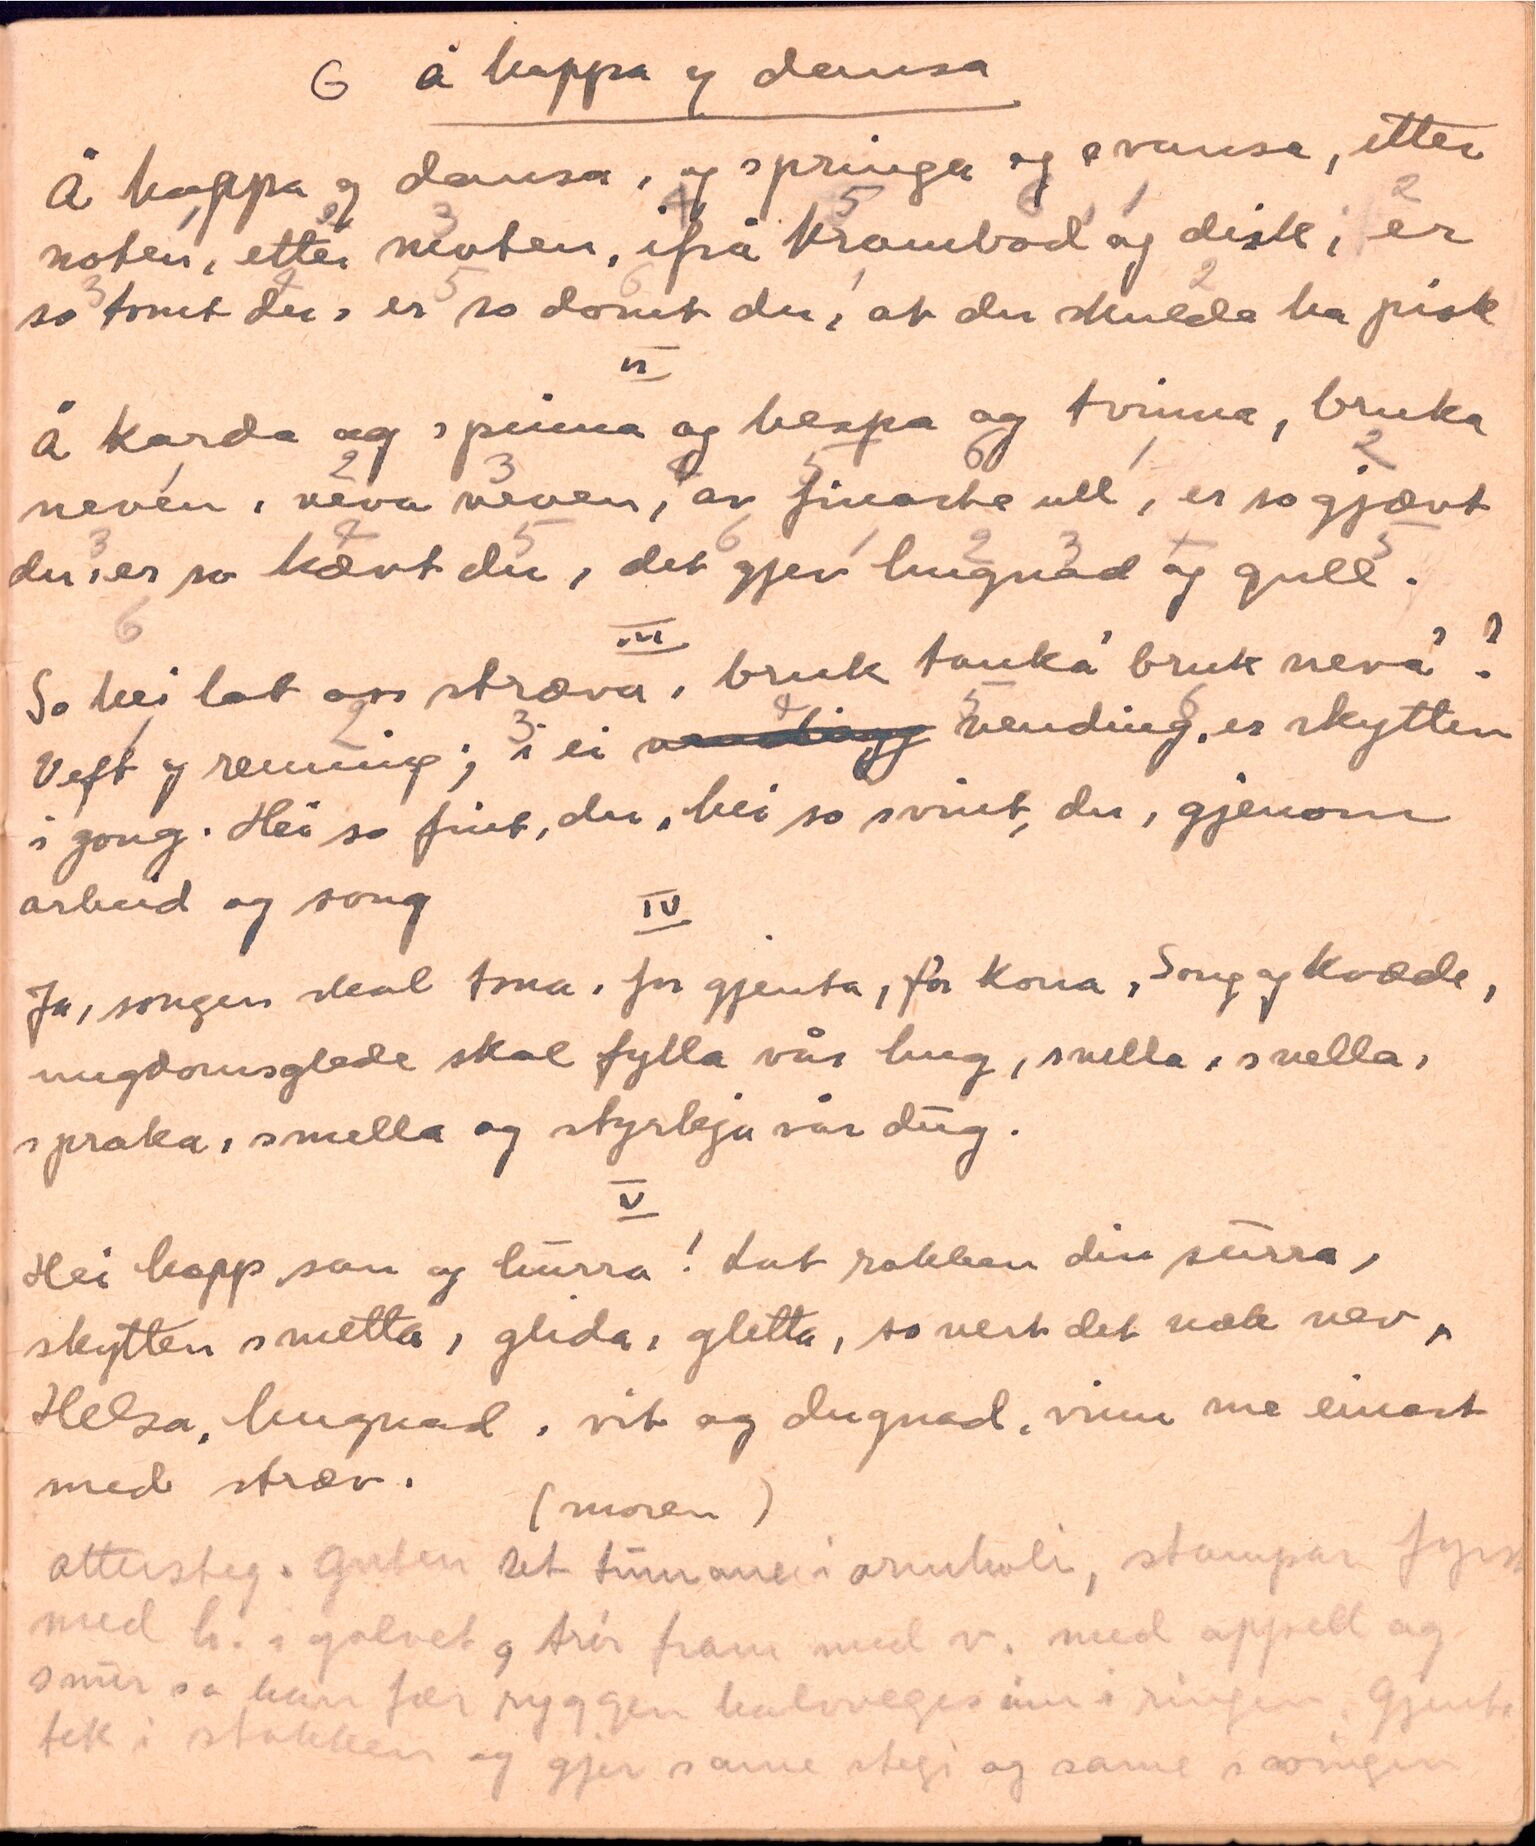 G Å hoppa og dansa
Å hoppa og dansa, og springa og svansa, etter
noten, etter moten, ifrå krambod og disk, er
so tomt du, er so domt du, at du skulde ha pisk
II
Å karda og spinna og hespa og tvinna, bruka
neven, veva veven, av finaste ull, er so gjævt
du, er so kævt du, det gjev hugnad og gull.
III
So hei lat oss stræva, bruk tanka bruk neva!
Veft og renning; i ei vending, er skytten
i gong. Hei so fint, du, hei so svint, du, gjenom
arbeid og song
IV
Ja, songen skal tona, for gjenta, for kona, Song og kvæde,
ungdomsglede skal fylla vår hug, snella, snella,
spraka, smella og styrkja vår dug.
V
Hei hopp san og hurra! Lat rokken din surra,
skytten smetta, glida, gletta, so vert det nok vev,
Helsa, hugnad, vit og dugnad, vinn me einast
med stræv.
(moren)
attersteg. Guten set tumane i armholi, stampar fyrst
med h. i golvet og trør fram med v. med appell og
snur so han fær ryggen halvveges inn i ringen. Gjenta
tek i stakken og gjer same stegi og same svingen